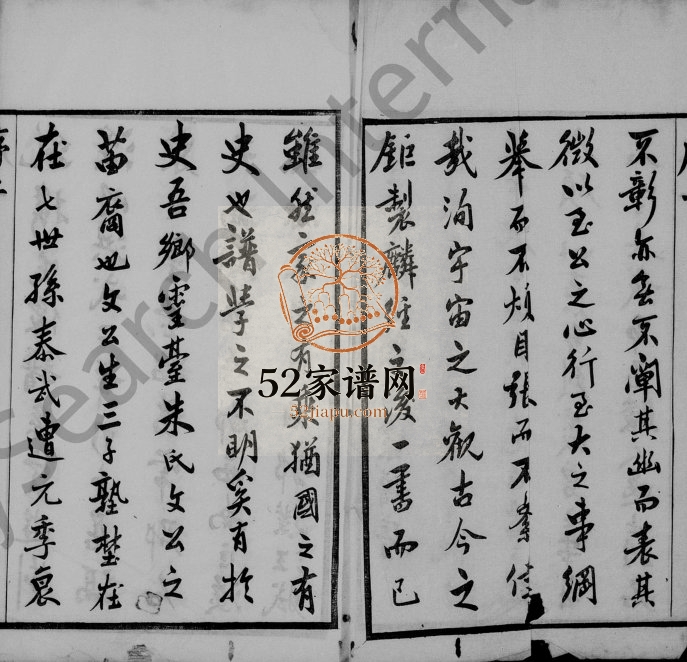 不彰亦無不闡其幽而表其
微以至公之心行至大之事綱
舉而不煩目張而不紊
載洵宇宙之大觀古今之
鉅製麟經之後一書而已
雖然家之有乘猶國之有
史也譜學之不明奚有於
史吾鄉靈臺朱氏文公之
苗裔也文公生三子塾埜在
在七世孫泰武遭元季衰
52家谱网
52jiapu.com
Search Interna